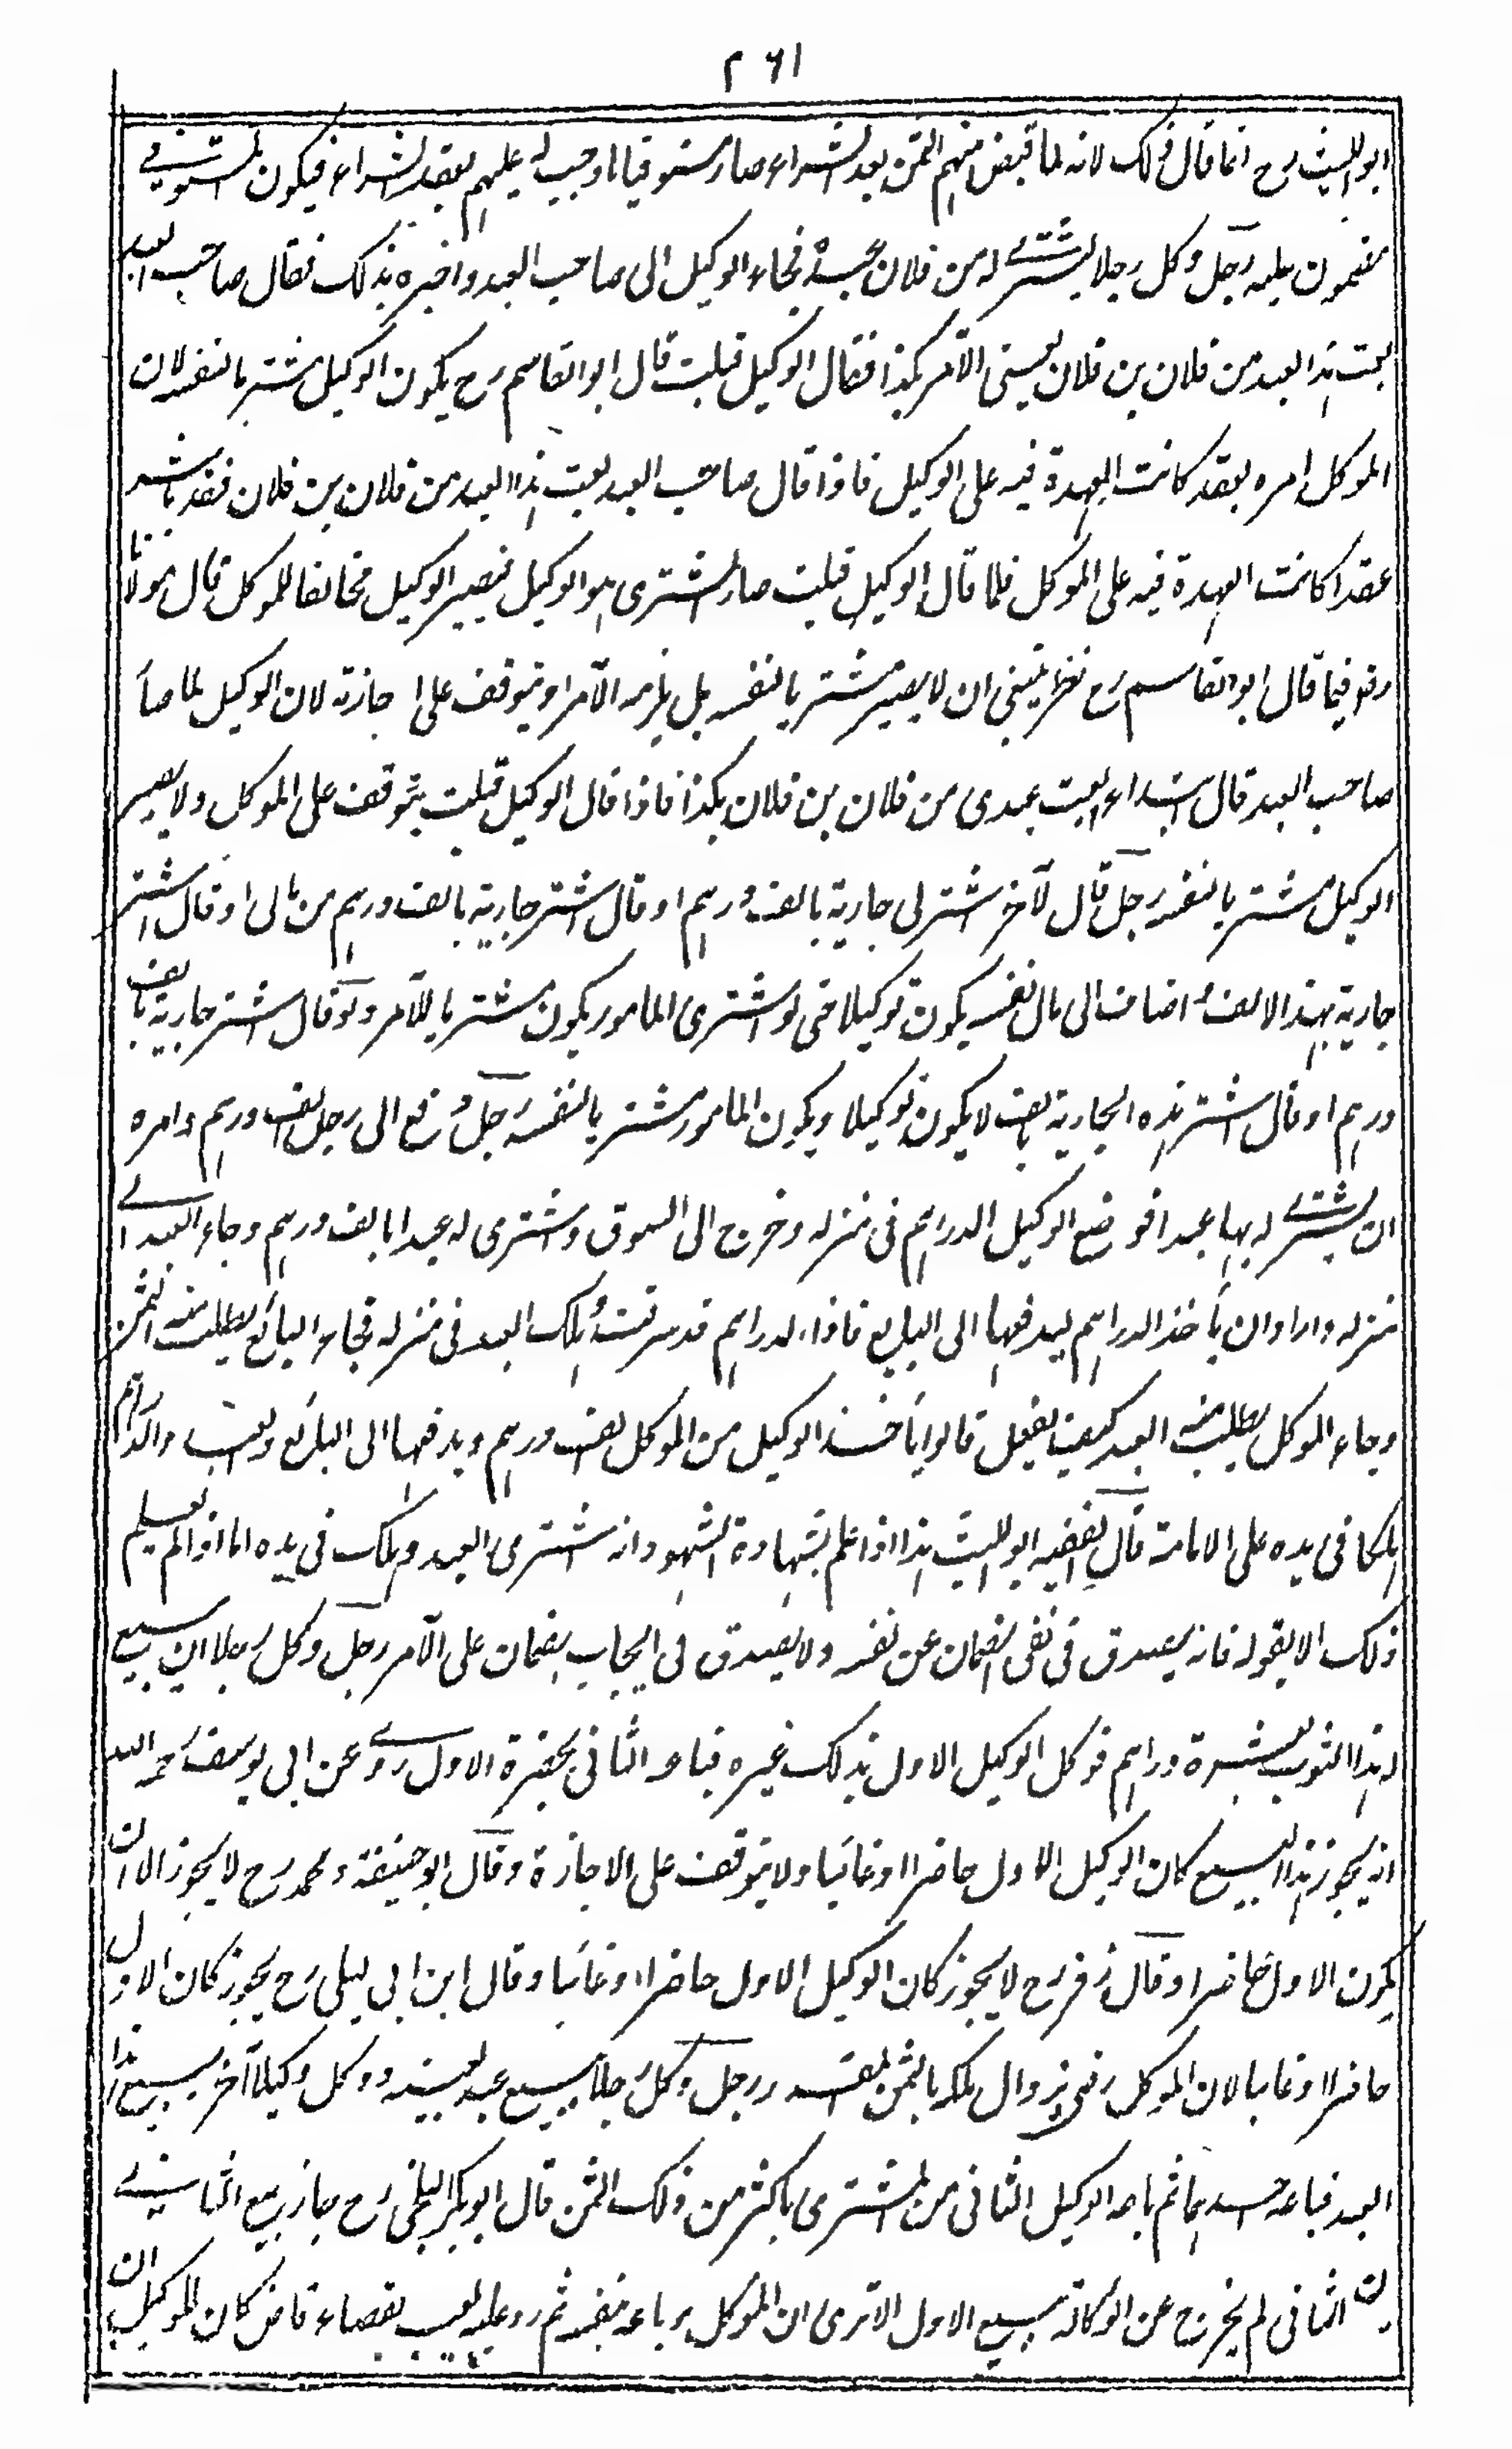 ٢٦١
ابو الليث رح انما قال ذلك لانه لما قبض منهم الثمن بعد الشراء صار مستوفيا لما وجب له عليهم بعقد الشراء فيكون المستوفى
مضمون عليه رجل وكل رجلا يشترى له من فلان عبده فجاء الوكيل الى صاحب العبد واخبره بذلك فقال صاحب العبد
بعت هذا العبد من فلان بن فلان يعنى الآمر بكذا فقال الوكيل قبلت قال ابو القاسم رح يكون الوكيل مشتريا لنفسه لان
الموكل امره بعقد كانت العهدة فيه على الوكيل فاذا قال صاحب العبد بعت هذا العبد من فلان بن فلان فقد باشر
عقدا كانت العهدة فيه على الموكل فلما قال الوكيل قبلت صار المشترى هو الوكيل فيصير الوكيل مخالفا للموكل قال مولانا
رض وفيما قال ابو القاسم رح نظر ينبغى ان لا يصير مشتريا لنفسه بل يلزمه الآمر او يتوقف على اجازته لان الوكيل لما صا
صاحب العبد قال ابتداء بعت عبدى من فلان بن فلان بكذا فاذا قال الوكيل قبلت يتوقف على الموكل ولا يصير
الوكيل مشتريا لنفسه رجل قال لآخر اشتر لى جارية بالف درهم او قال اشتر جارية بالف درهم من مالى او قال اشتر
جارية بهذا الالف واضاف الى مال نفسه يكون توكيلا حتى لو اشترى المامور يكون مشتريا للآمر ولو قال اشتر جارية بالف
درهم او قال اشتر هذه الجارية بالف لا يكون توكيلا ويكون المامور مشتريا لنفسه رجل دفع الى رجل الف درهم وامره
ان يشترى له بها عبدا فوضع الوكيل الدراهم فى منزله وخرج الى السوق واشترى له عبدا بالف درهم وجاء بالعبد الى
منزله واراد ان يأخذ الدراهم ليدفعها الى البايع فاذا الدراهم قد سرقت وهلك العبد فى منزله فجاء البائع يطلب منه الثمن
وجاء الموكل يطلب منه العبد كيف يفعل قالوا يأخذ الوكيل من الموكل الف درهم ويدفعها الى البائع والعبد والدراهم
هلكا فى يده على الامانة قال الفقيه ابو الليث هذا اذا علم بشهادة الشهود انه اشترى العبد وهلك فى يده اما اذا لم يعلم
ذلك الا بقوله فانه يصدق فى نفى الضمان عن نفسه ولا يصدق فى ايجاب الضمان على الآمر رجل وكل رجلا ان يبيع
له هذا الثوب بعشرة دراهم فوكل الوكيل الاول بذلك غيره فباعه الثانى بحضرة الاول روى عن ابى يوسف رحمه الله
انه يجوز هذا البيع كان الوكيل الاول حاضرا او غائبا ولا يتوقف على الاجازة وقال ابو حنيفة ومحمد رح لا يجوز الا ان
يكون الاول حاضرا وقال زفر رح لا يجوز كان الوكيل الاول حاضرا او غائبا وقال ابن ابى ليلى رح يجوز كان الاول
حاضرا او غائبا لان الموكل رضى بزوال ملكه بالثمن المقدر رجل وكل رجلا ببيع عبد بعينه ووكل وكيلا آخر ببيع هذا
العبد فباعه احدهما ثم باعه الوكيل الثانى من المشترى باكثر من ذلك الثمن قال ابو بكر البلخى رح جاز بيع الثانى
لان الثانى لم يخرج عن الوكالة ببيع الاول الا ترى ان الموكل لو باعه بنفسه ثم رد عليه بعيب بقضاء قاض كان للوكيل ان